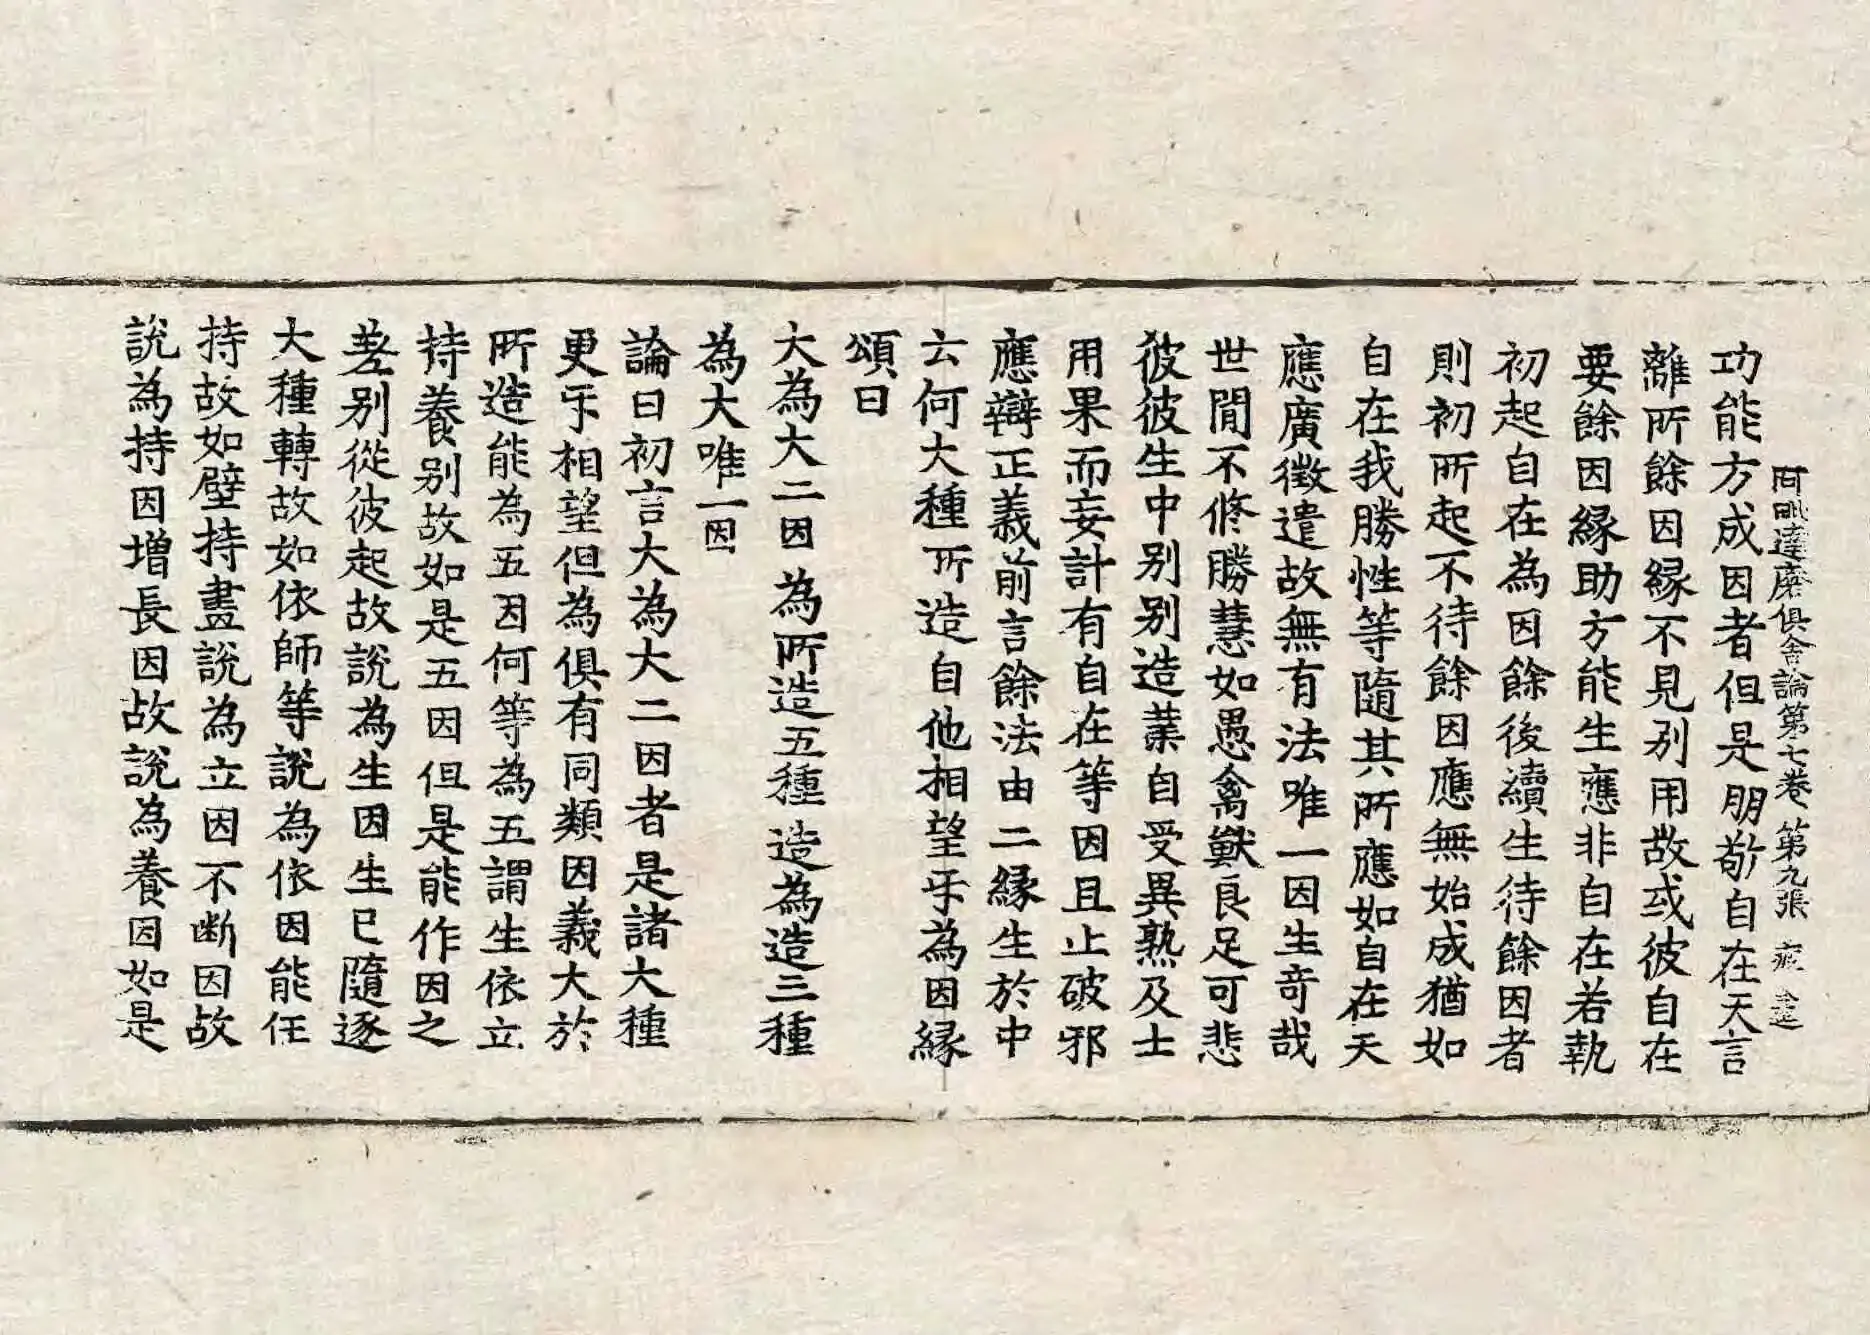 阿毗達磨俱舍論第七卷 第九張 疲
功能方成因者但是朋敬自在天言
離所餘因緣不見別用故或彼自在
要餘因緣助方能生應非自在若執
初起自在為因餘後續生待餘因者
則初所起不待餘因應無始成猶如
自在我勝性等隨其所應如自在天
應廣徵遣故無有法唯一因生奇哉
世間不修勝慧如愚禽獸良足可悲
彼彼生中別別造業自受異熟及士
用果而妄計有自在等因且止破邪
應辯正義前言餘法由二緣生於中
云何大種所造自他相望乎為因緣
頌曰
大為大二因 為所造五種 造為造三種
為大唯一因
論曰初言大為大二因者是諸大種
更乎相望但為俱有同類因義大於
所造能為五因何等為五謂生依立
持養別故如是五因但是能作因之
差別從彼起故說為生因生已隨逐
大種轉故如依師等說為依因能任
持故如壁持畫說為立因不斷因故
說為持因增長因故說為養因如是